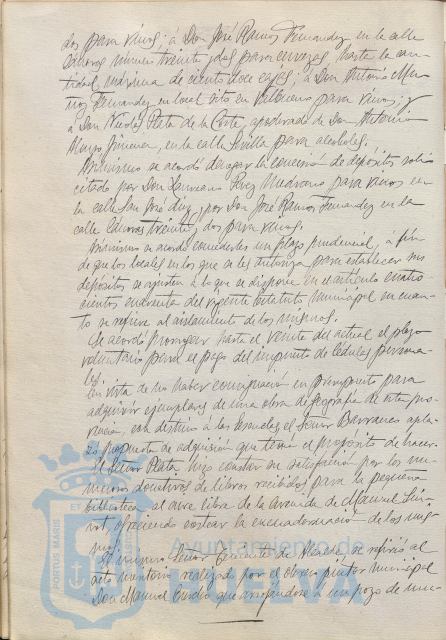 dos para vinos; á Don José Ramos Fernandez en la calle
Cánovas numero treinta y dos para cervezas, hasta la can-
tidad maxima de ciento doce cajas; á Don Antonio Mu-
ñoz Fernandez en local sito en para vinos; y
á Don Nicolas Plata de la Corte, apoderado de Don Antonio
Jimenez, en la calle Sevilla para alcoholes.
Asimismo se acordó denegar la concesión de depósitos soli-
citado por Don Laureano Perez Medrano para vinos en
la calle San José diez, por Don José Ramos Fernandez en la
calle Cánovas treinta y dos para vinos.
Asimismo se acordó concederles un plazo prudencial, á fin
de que los locales en los que se les autoriza para establecer sus
depósitos se ajusten á lo que se dispone en el artículo cuatro
cientos cuarenta del vigente Estatuto Municipal en cuan-
to se refiere al aislamiento de los mismos.
Se acordó prorrogar hasta el veinte del actual el plazo
voluntario para el pago del impuesto de cédulas persona-
les.
En vista de no haber consignación en presupuesto para
adquirir ejemplares de una obra de geografia de esta pro-
vincia con destino á las escuelas el Señor Barranco apla-
zó propuesta de adquisición que tenia el proposito de hacer.
El Señor Plata hizo constar su satisfacción por los nu-
merosos donativos de libros recibidos para la pequeña
biblioteca al aire libre de la Avenida de Manuel Siu-
rot, ofreciendo costear la encuadernación de los mis-
mos.
El mismo Señor Teniente de Alcalde se refirió al
acto meritorio realizado por el obrero pintor municipal
Don Manuel que arrojandose á un pozo de nue-
PORTUS MARIS ET
Ayuntamiento de
HUELVA